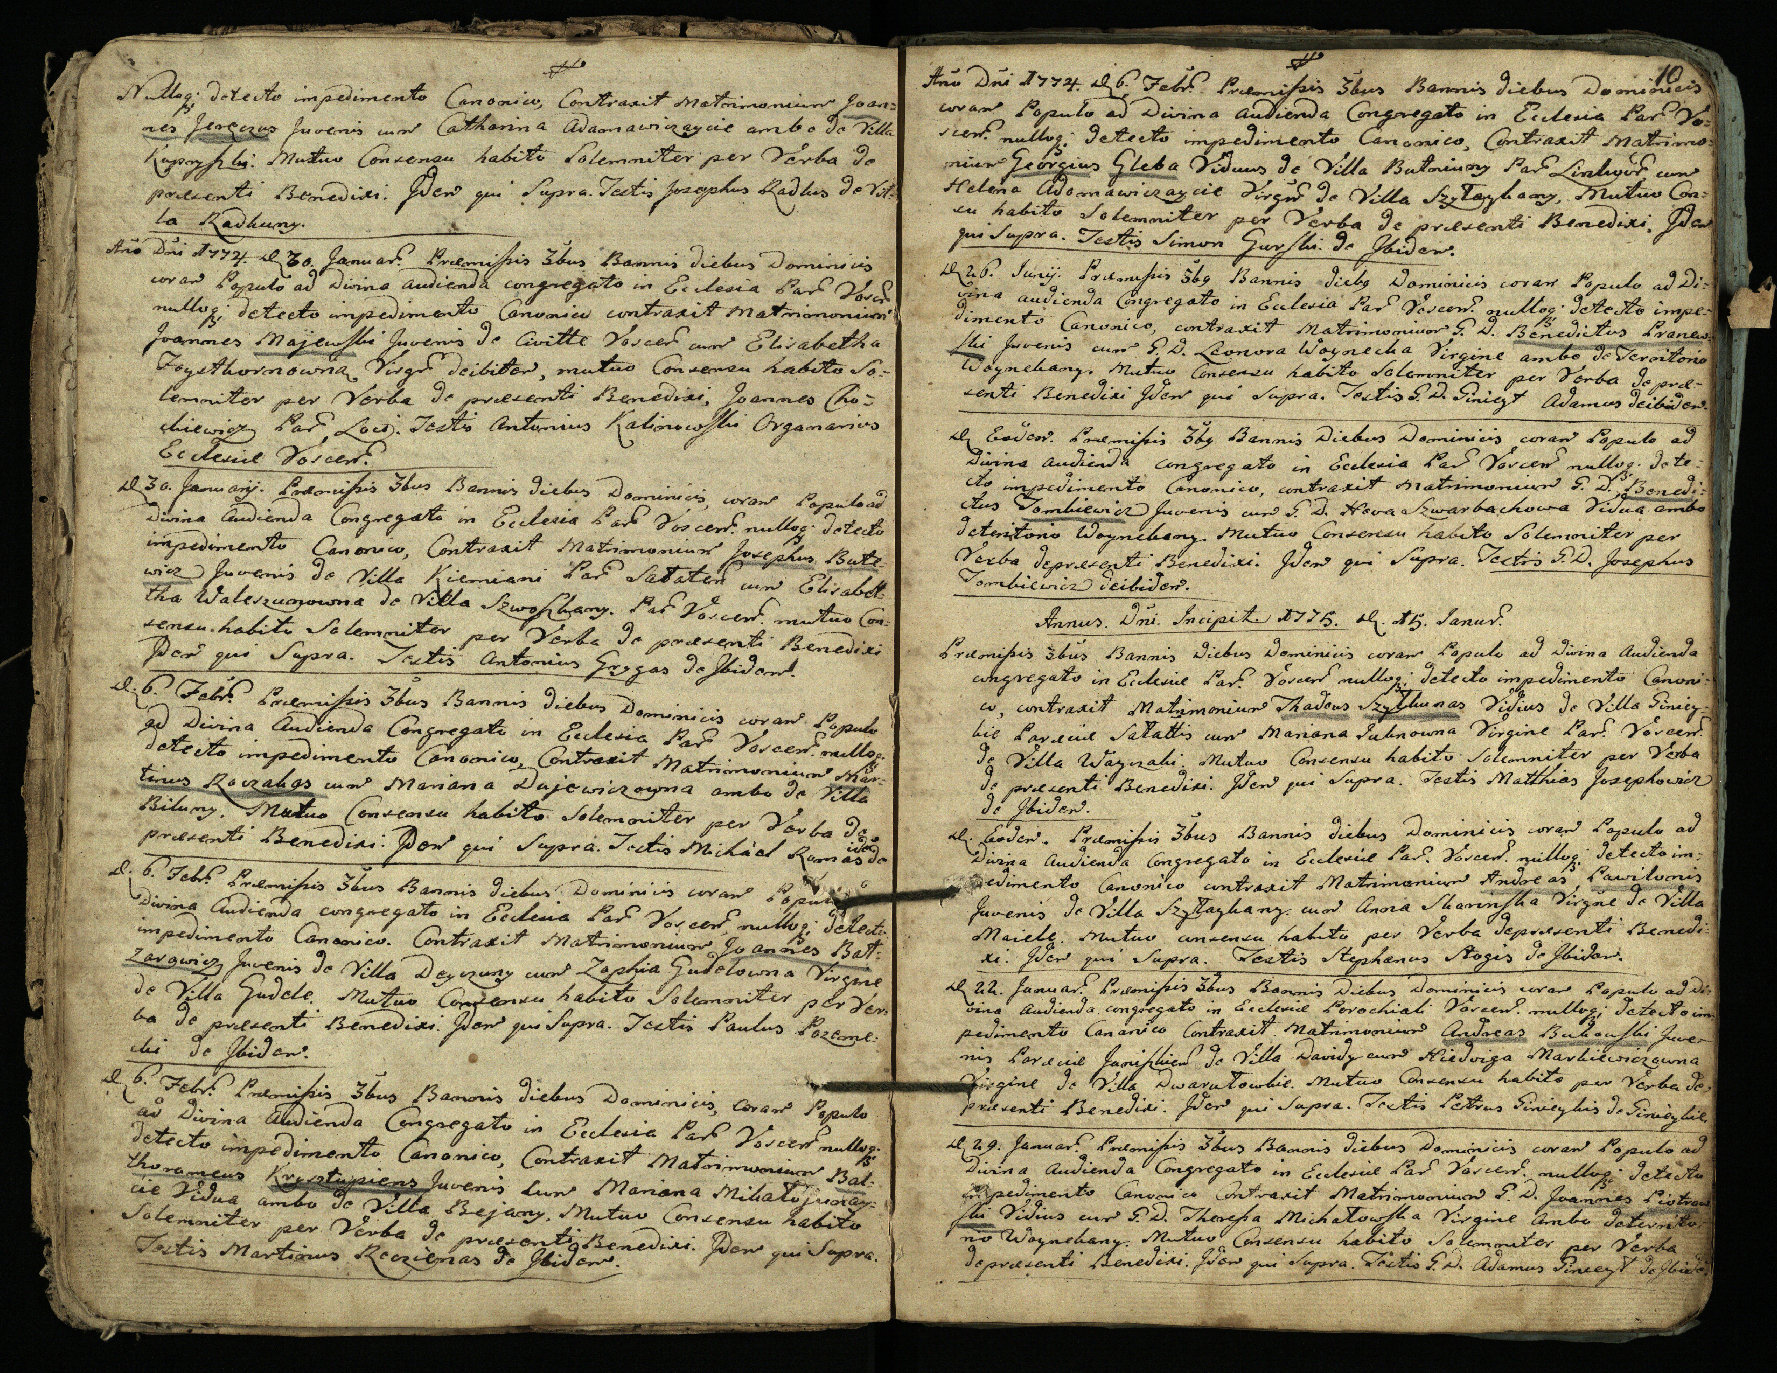 Nullog detecto impedimento Canonico, Contraxit Matrimonium Joan=
nes Jereczus Juvenis cum Catharina Adamawiczaycie ambo de Villa
Mutuo Consensu habito Solemniter per Verba de
præsenti Benedixi. Jdem qui Supra. Testis Josephus Radlus de Vil=
la Radkuny.
Año Dñi 1774. D 30. Januar. Præmissis 3bus Bannis diebus Dominicis
coram Populo ad Divina audienda congregato in Ecclesia Par Voscen
nullog detecto impedimento Canonico contraxit Matrimonium
Joannes Majewski Juvenis de Civitte Voscen cum Elisabetha
Virgr deibitem, mutuo Consensu habito So=
lemniter per Verba de præsenti Benedixi, Joannes Cho=
dkiewicz Par Loci. Testis Antonius Kalinowski Organarius
Ecclesiæ Voscen.
D 30. Januarij. Præmissis 3bus Bannis diebus Dominicis, coram Populo ad
Divina Audienda Congregato in Ecclesia Par Voscen. nullog detecto
impedimento Canonico, Contraxit Matrimonium Josephus Butk
wicz Juvenis de Villa Kiemiani Par Sataten cum Elisabe
tha Waleszunowna de Villa Szwoskany. Par Voscen. mutuo Con=
sensu habito Solemniter per Verba de præsenti Benedixi
Jdem qui Supra. Testis Antonius Grygas de Jbidem.
D. 6. Febr. Præmissis 3bus Bannis diebus Dominicis coram Populo
ad Divina Audienda Congregato in Ecclesia Par Voscen. nullog.
detecto impedimento Canonico, Contraxit Matrimonium Mar=
tinus Raczakas cum Mariana Dajewiczowna ambo de Villa
Biluny. Mutuo Consensu habito Solemniter per Verba de
præsenti Benedixi. Jdem qui Supra. Testis Michael Ramas de
D. 6. Febr. Præmissis 3bus Bannis diebus Dominicis coram Populo
Divina Audienda congregato in Ecclesia Par Voscen nullog detect
impedimento Canonico. Contraxit Matrimonium Joannes Bat=
zarowicz Juvenis de Villa Deyczuny cum Zophia Gudelowna Virgine
de Villa Gudele. Mutuo Consensu habito Solemniter per Ver
ba de præsenti Benedixi. Jdem qui Supra. Testis Paulus Pozeme=
cki de Jbidem.
D 6. Febr. Præmissis 3bus Bannis diebus Dominicis, coram Populo
ad Divina Audienda Congregato in Ecclesia Par Voscen nullog.
detecto impedimento Canonico, Contraxit Matrimonium Bal=
thorameus Krystupiens Juvenis cum Mariana
cie Vidua ambo de Villa Bejany. Mutuo Consensu habito
Solemniter per Verba de præsenti Benedixi. Jdem qui Supra.
Testis Martinus Rzeczienas de Jbidem.
10
Año Dñi 1774. D 6. Febr. Præmissis 3bus Bannis diebus Dominicis
coram Populo ad Divina Audienda Congregato in Ecclesia Par Vo=
scen. nullog detecto impedimento Canonico, Contraxit Matrimo=
nium Georgius Gleba Viduus de Villa Butniuny Par Linkow cum
Helena Adamawiczaycie Virgin de Villa Szylaykany, Mutuo Con=
su habito Solemniter per Verba de præsenti Benedixi, Jdem
qui Supra. Testis Simon Gurski de Jbidem.
D 26. Junij. Præmissis 3bg Bannis diebg Dominicis coram Populo ad Di=
vina audienda Congregato in Ecclesia Par Voscen. nullog detecto impe=
dimento Canonico, contraxit Matrimonium G. D. Benedictus Pranew=
ski Juvenis cum G. D. Leonora Woynecka Virgine ambo de Territorio
Woynekany. Mutuo Consensu habito Solemniter per Verba de præ=
senti Benedixi Jdem qui Supra. Testis G. D. Giniey​t Adamus deibidem.
D Eodem. Præmissis 3bg Bannis Diebus Dominicis coram Populo ad
Divina Audienda congregato in Ecclesia Par Voscen nullog. dete=
cto impedimento Canonico, contraxit Matrimonium G. D. Benedi=
ctus Tombiewicz Juvenis cum G. D. Heva Szwarbachowa Vidua ambo
deteritorio Woynekany. Mutuo Consensu habito Solemniter per
Verba depræsenti Benedixi. Jdem qui Supra. Testis G. D. Josephus
Tombiewicz deibidem.
Annus. Dñi. Incipit. 1775. D. 15. Januar.
Præmissis 3bus Bannis Diebus Dominicis coram Populo ad Divina Audienda
congregato in Ecclesiæ Par. Voscen nullog detecto impedimento Canoni=
co, contraxit Matrimonium Thadeus Szytkunas Vidius de Villa Giniey=
kie Parœciæ Satattis cum Mariana Jutnowna Virgine Par. Voscen.
de Villa Waynaki. Mutuo Consensu habito Solemniter per Verba
de præsenti Benedixi. Jdem qui Supra. Testis Matthias Josephowicz
de Jbidem.
D. Eodem. Præmissis 3bus Bannis diebus Dominicis coram Populo ad
Divina Audienda Congregato in Ecclesiæ Par. Voscen. nullog detecto im=
pedimento Canonico contraxit Matrimonium Andreas Pawilonis
Juvenis de Villa Szylaykany. cum Anna Skarinska Virgne de Villa
Maiele. Mutuo consensu habito per Verba depræsenti Benedi=
xi. Jdem qui Supra. Testis Stephanus Stogis de Jbidem.
D 22. Januar. Præmissis 3bus Bannis Diebus Dominicis coram Populo ad Di=
vina Audienda congregato in Ecclesiæ Porochiali Voscen. nullog detecto im
pedimento Canonico Contraxit Matrimonium Andreas Bukowski Juve=
nis Parœciæ Janiskien de Villa Davidy cum Hiedviga Markiewiczowna
Virgine de Villa Dwaratowkie. Mutuo Consensu habito per Verba de
præsenti Benedixi. Jdem qui Supra. Testis Petrus Ginieykis de Ginieykie
D 29. Januar. Præmissis 3bus Bannis diebus Dominicis coram Populo ad
Divina Audienda Congregato in Ecclesiæ Par Voscen. nullog detecto
impedimento Canonico Contraxit Matrimonium G. D. Joannes Piotrow
ski Vidius cum G. D. Theresia Michatowska Virgine Ambo deterrito=
rio Woynekany. Mutuo Consensu habito Solemniter per Verba
depræsenti Benedixi. Jdem qui Supra. Testis G. D. Adamus Ginieyt de Jbidem